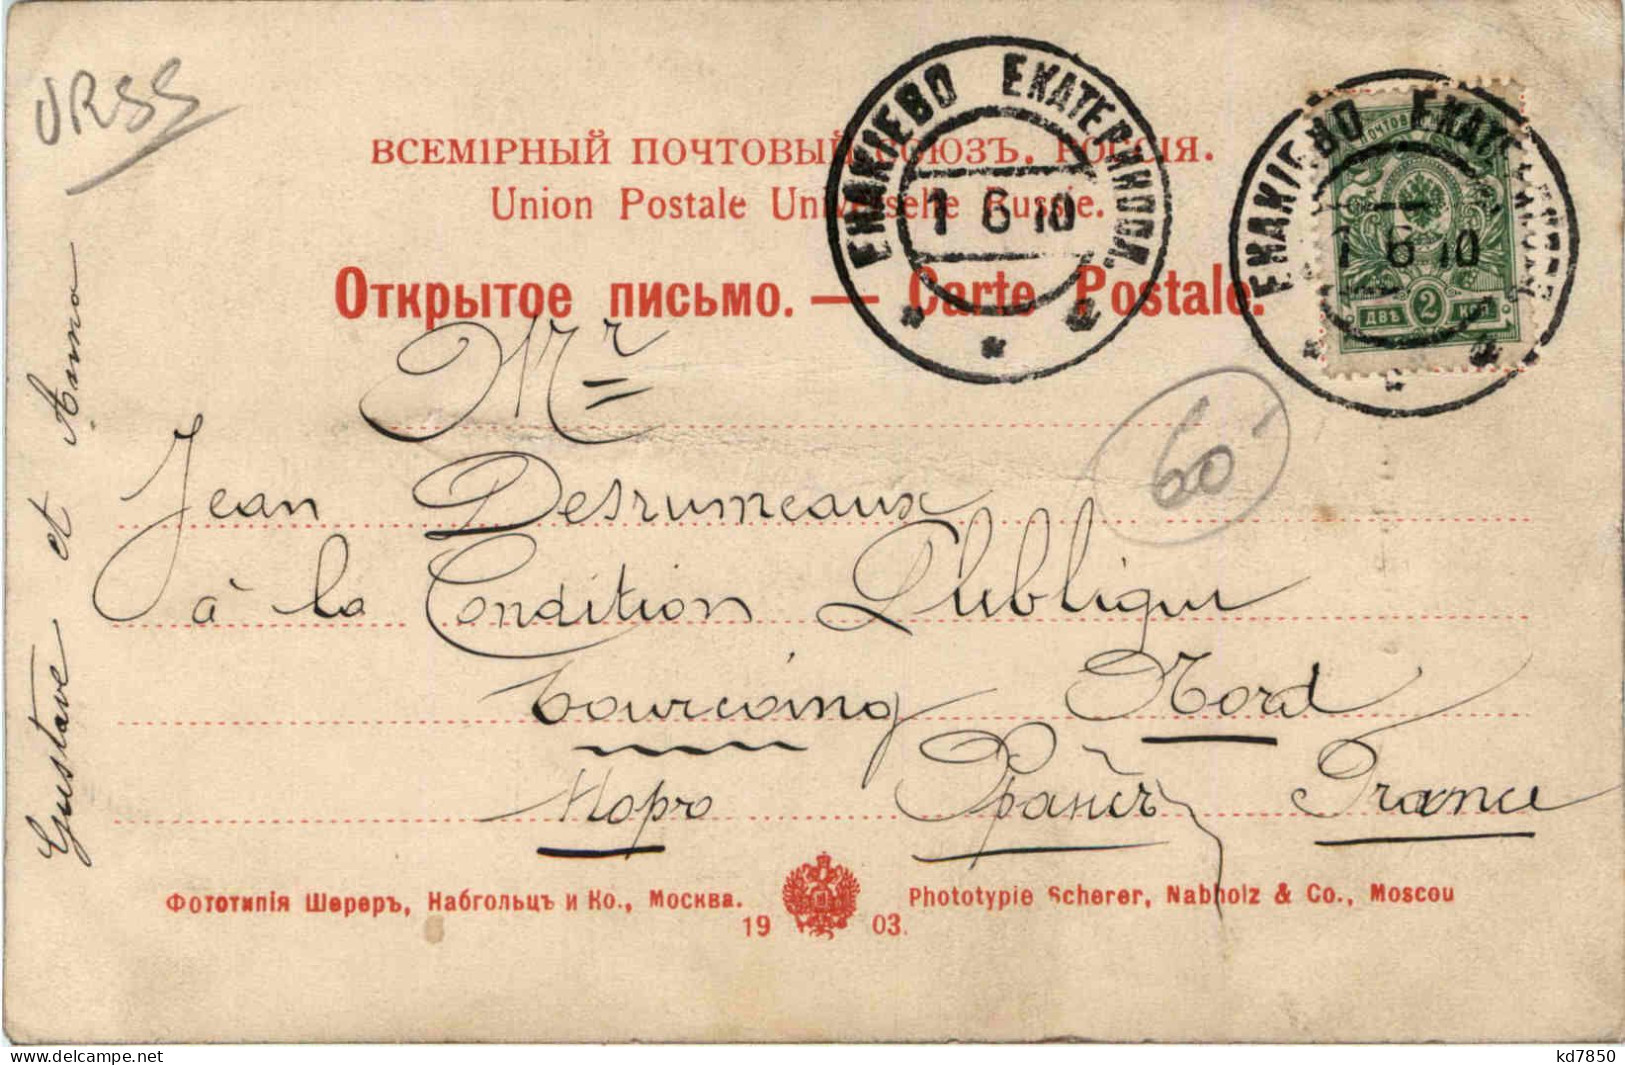 URSS
ВСЕМIРНЫЙ ПОЧТОВЫЙ СОЮЗЪ. РОССIЯ.
Union Postale Universelle Russie.
Открытое письмо. — Carte Postale.
ЕНАКІЕВО ЕКАТЕРИНОСЛ.
1 6 10
ЕНАКІЕВО ЕКАТЕРИНОСЛ.
1 6 10
ДВѢ 2 КОП.
Mr
60
Jean Desrumeaux
à la Condition Publique
Tourcoing Nord
Норъ Франсъ France
Gustave et Anna
Фототипія Шереръ, Набгольцъ и Ко., Москва.
Phototypie Scherer, Nabholz & Co., Moscou
19 03.
kd7850